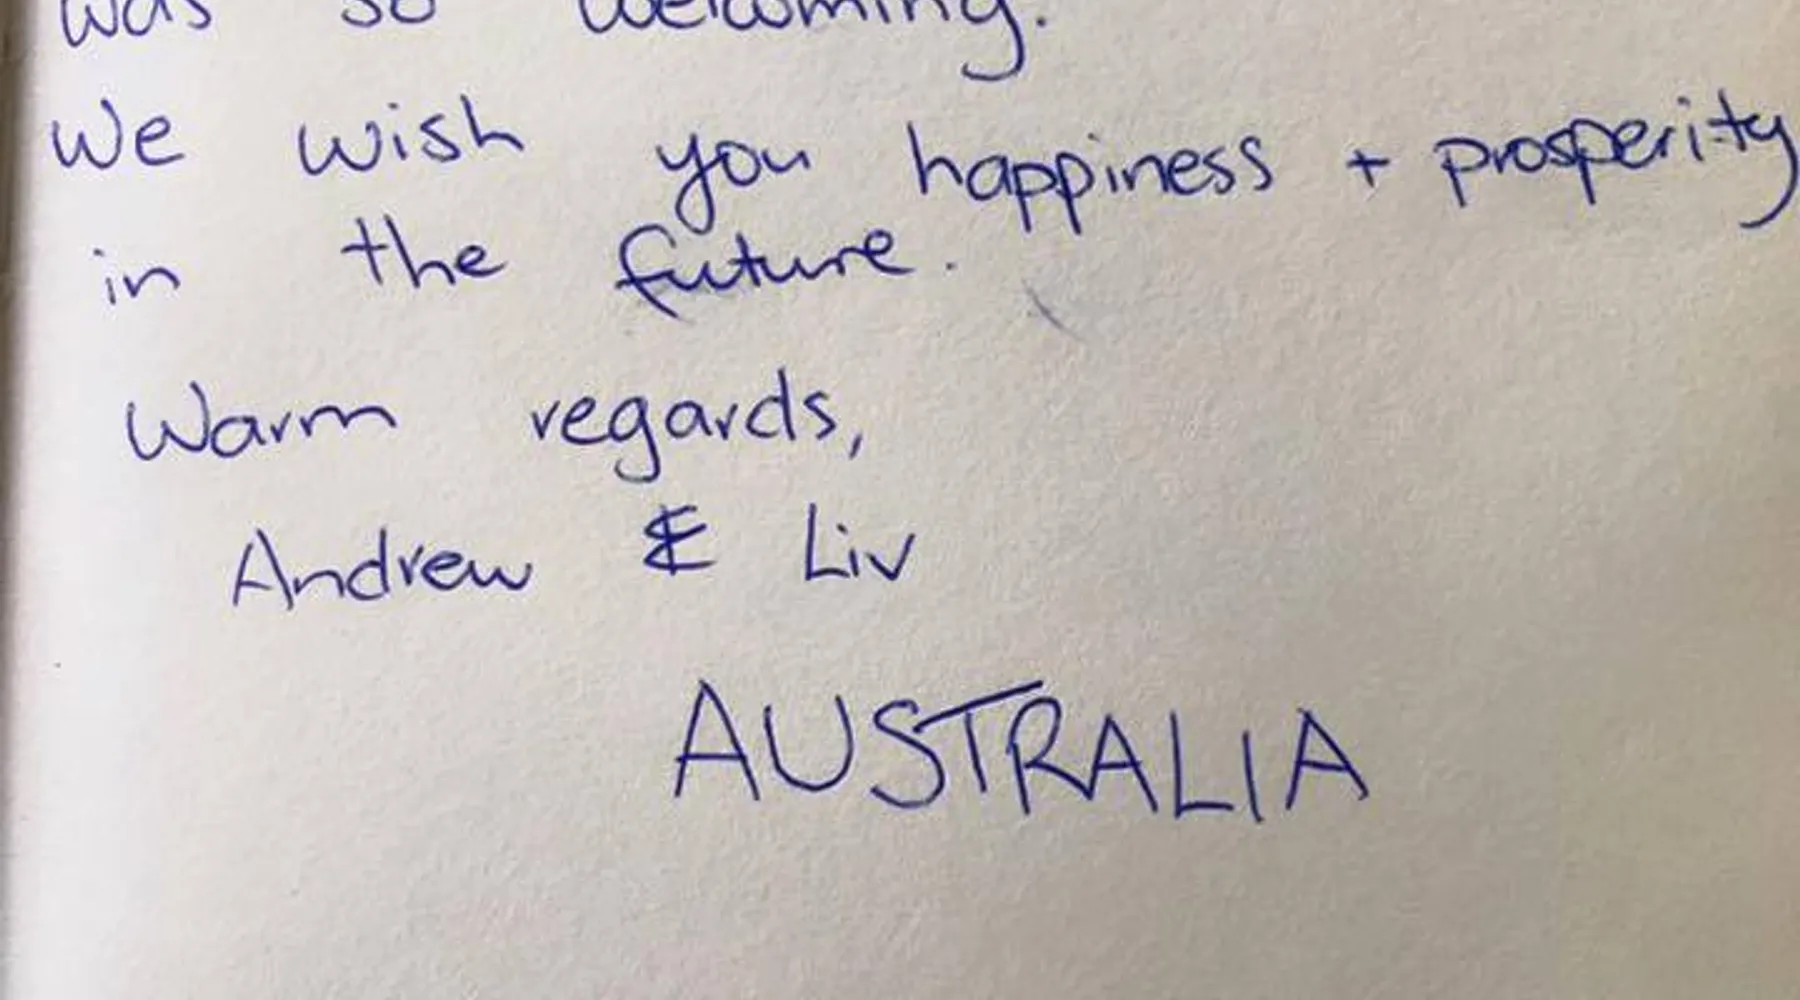 was so welcoming.
We wish you happiness + prosperity
in the future.
Warm regards,
Andrew & Liv
AUSTRALIA